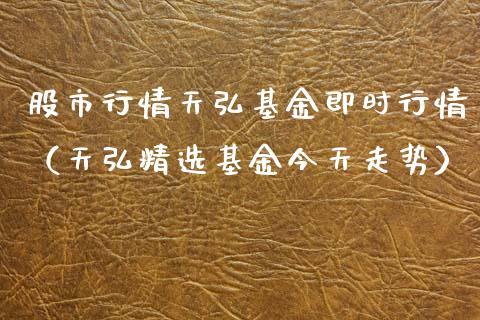 股市行情天弘基金即时行情
（天弘精选基金今天走势）